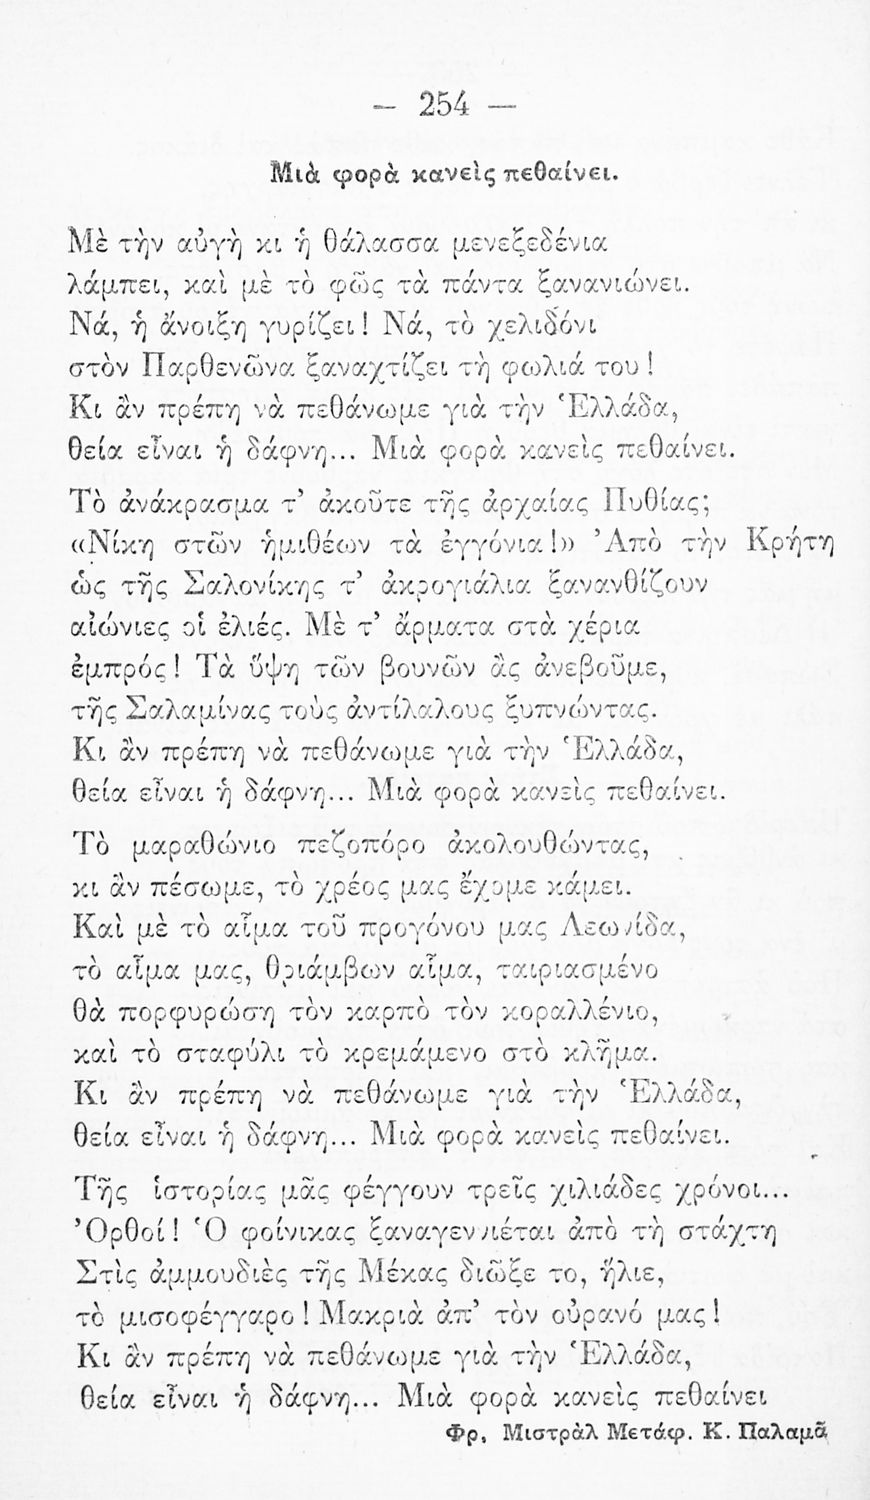 — 254 —
Μιὰ φορὰ κανεὶς πεθαίνει.
Μὲ τὴν αὐγὴ κι ἡ θάλασσα μενεξεδένια
λάμπει, καὶ μὲ τὸ φῶς τὰ πάντα ξανανιώνει.
Νά, ἡ ἄνοιξη γυρίζει! Νά, τὸ χελιδόνι
στὸν Παρθενῶνα ξαναχτίζει τὴ φωλιά του!
Κι ἂν πρέπῃ νὰ πεθάνωμε γιὰ τὴν Ἑλλάδα,
θεία εἶναι ἡ δάφνη... Μιὰ φορὰ κανεὶς πεθαίνει.
Τὸ ἀνάκρασμα τ’ ἀκοῦτε τῆς ἀρχαίας Πυθίας;
«Νίκη στῶν ἡμιθέων τὰ ἐγγόνια!» Ἀπὸ τὴν Κρήτη
ὡς τῆς Σαλονίκης τ’ ἀκρογιάλια ξανανθίζουν
αἰώνιες οἱ ἐλιές. Μὲ τ’ ἄρματα στὰ χέρια
ἐμπρός! Τὰ ὕψη τῶν βουνῶν ἂς ἀνεβοῦμε,
τῆς Σαλαμίνας τοὺς ἀντίλαλους ξυπνώντας.
Κι ἂν πρέπῃ νὰ πεθάνωμε γιὰ τὴν Ἑλλάδα,
θεία εἶναι ἡ δάφνη... Μιὰ φορὰ κανεὶς πεθαίνει.
Τὸ μαραθώνιο πεζοπόρο ἀκολουθώντας,
κι ἂν πέσωμε, τὸ χρέος μας ἔχομε κάμει.
Καὶ μὲ τὸ αἷμα τοῦ προγόνου μας Λεωνίδα,
τὸ αἷμα μας, θριάμβων αἷμα, ταιριασμένο
θὰ πορφυρώσῃ τὸν καρπὸ τὸν κοραλλένιο,
καὶ τὸ σταφύλι τὸ κρεμάμενο στὸ κλῆμα.
Κι ἂν πρέπῃ νὰ πεθάνωμε γιὰ τὴν Ἑλλάδα,
θεία εἶναι ἡ δάφνη... Μιὰ φορὰ κανεὶς πεθαίνει.
Τῆς ἱστορίας μᾶς φέγγουν τρεῖς χιλιάδες χρόνοι...
Ὀρθοί! Ὁ φοίνικας ξαναγεννιέται ἀπὸ τὴ στάχτη
Στὶς ἀμμουδιὲς τῆς Μέκας διῶξε το, ἥλιε,
τὸ μισοφέγγαρο! Μακριὰ ἀπ’ τὸν οὐρανό μας!
Κι ἂν πρέπῃ νὰ πεθάνωμε γιὰ τὴν Ἑλλάδα,
θεία εἶναι ἡ δάφνη... Μιὰ φορὰ κανεὶς πεθαίνει
Φρ. Μιστρὰλ Μετάφ. Κ. Παλαμᾶ